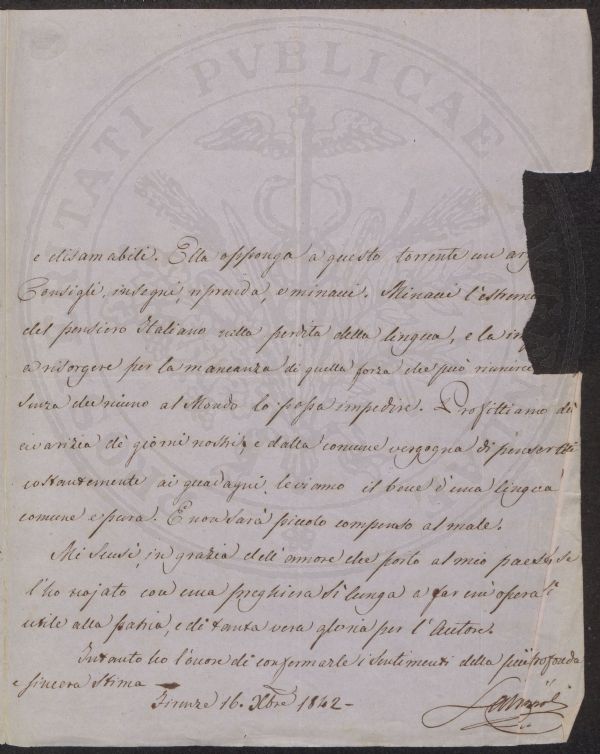 UTILITATI PUBLICAE
e disamabile. Ella opponga a questo torrente un
Consigli, insegni, riprenda, e minacci. Minacci l'estremo
del pensiero Italiano nella perdita della lingua, e la
a risorgere per la mancanza di quella forza che può
senza che niuno al Mondo lo possa impedire. Profittiamo di
avarizia de' giorni nostri, e dalla comune vergogna di pensar
costantemente ai guadagni, leviamo il bene d'una lingua
comune e pura. E non sarà piccolo compenso al male.
Mi scusi, in grazia dell'amore che porto al mio paese, se
l'ho nojato con una preghiera sì lunga a far un'opera
utile alla patria, e di tanta vera gloria per l'Autore.
Intanto ho l'onore di confermarle i sentimenti della più profonda
e sincera stima
Firenze 16. Xbre 1842 -